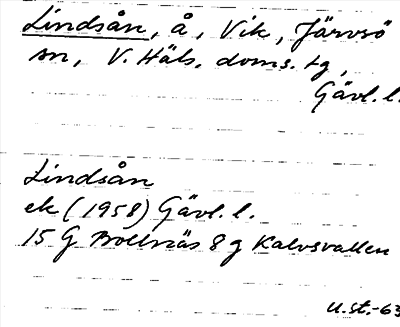 Lindsån, å, Vik, Järvsö
sn, V. Häls. doms. tg,
Gävl. l.
Lindsån
ek (1958) Gävl. l.
15 G Bollnäs 8 g Kalvsvallen
U.st.-63